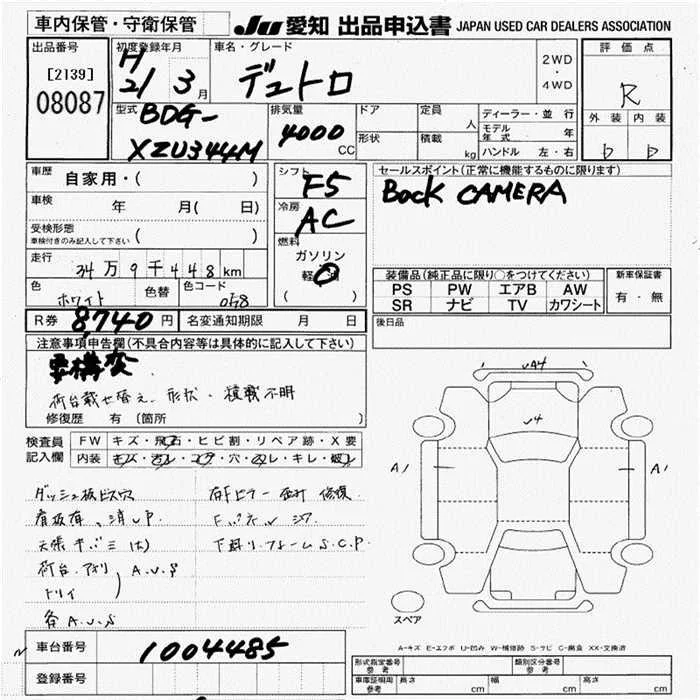 車内保管・守衛保管
JU 愛知 出品申込書 JAPAN USED CAR DEALERS ASSOCIATION
出品番号
[2139]
08087
初度登録年月
H 21 3 月
車名・グレード
デュトロ
2WD
・
4WD
評価点
R
外装 内装
D D
型式
BDG-
XZU344M
排気量
4000 CC
ドア
形状
定員 人
積載 kg
ディーラー・並行
モデル年式 年
ハンドル 左・右
車歴
自家用・( )
車検 年 月( 日)
受検形態
車検付きのみ記入して下さい ( )
走行
34万9千448km
色
ホワイト
色替
色コード
058
シフト
F5
冷房
AC
燃料
ガソリン
軽油
( )
セールスポイント(正常に機能するものに限ります)
Back CAMERA
装備品(純正品に限り○をつけてください)
PS PW エアB AW
SR ナビ TV カワシート
新車保証書
有・無
R券 8,740円
名変通知期限 月 日
後日品
注意事項申告欄(不具合内容等は具体的に記入して下さい)
車構変
荷台載せ替え、形状・積載不明
修復歴 有(箇所 )
検査員
記入欄
FW キズ・飛石・ヒビ割・リペア跡・X要
内装 キズ・汚レ・コゲ・穴・スレ・キレ・破レ
ダッシュ板ビス穴
看板有、消UP.
天張キバミ(大)
荷台.アオリ
トリイ
A.U.S
各A.U.S
右Fピラー歪ミ修理
下廻リフォームS.C.P.
UA4
U4
A1
A1
スペア
A-キズ E-エクボ U-凹み W-補修跡 S-サビ C-腐食 XX-交換済
車台番号 1004485
登録番号
形式指定番号
参考
類別区分番号
参考
車庫証明用
参考
長さ cm
幅 cm
高さ cm